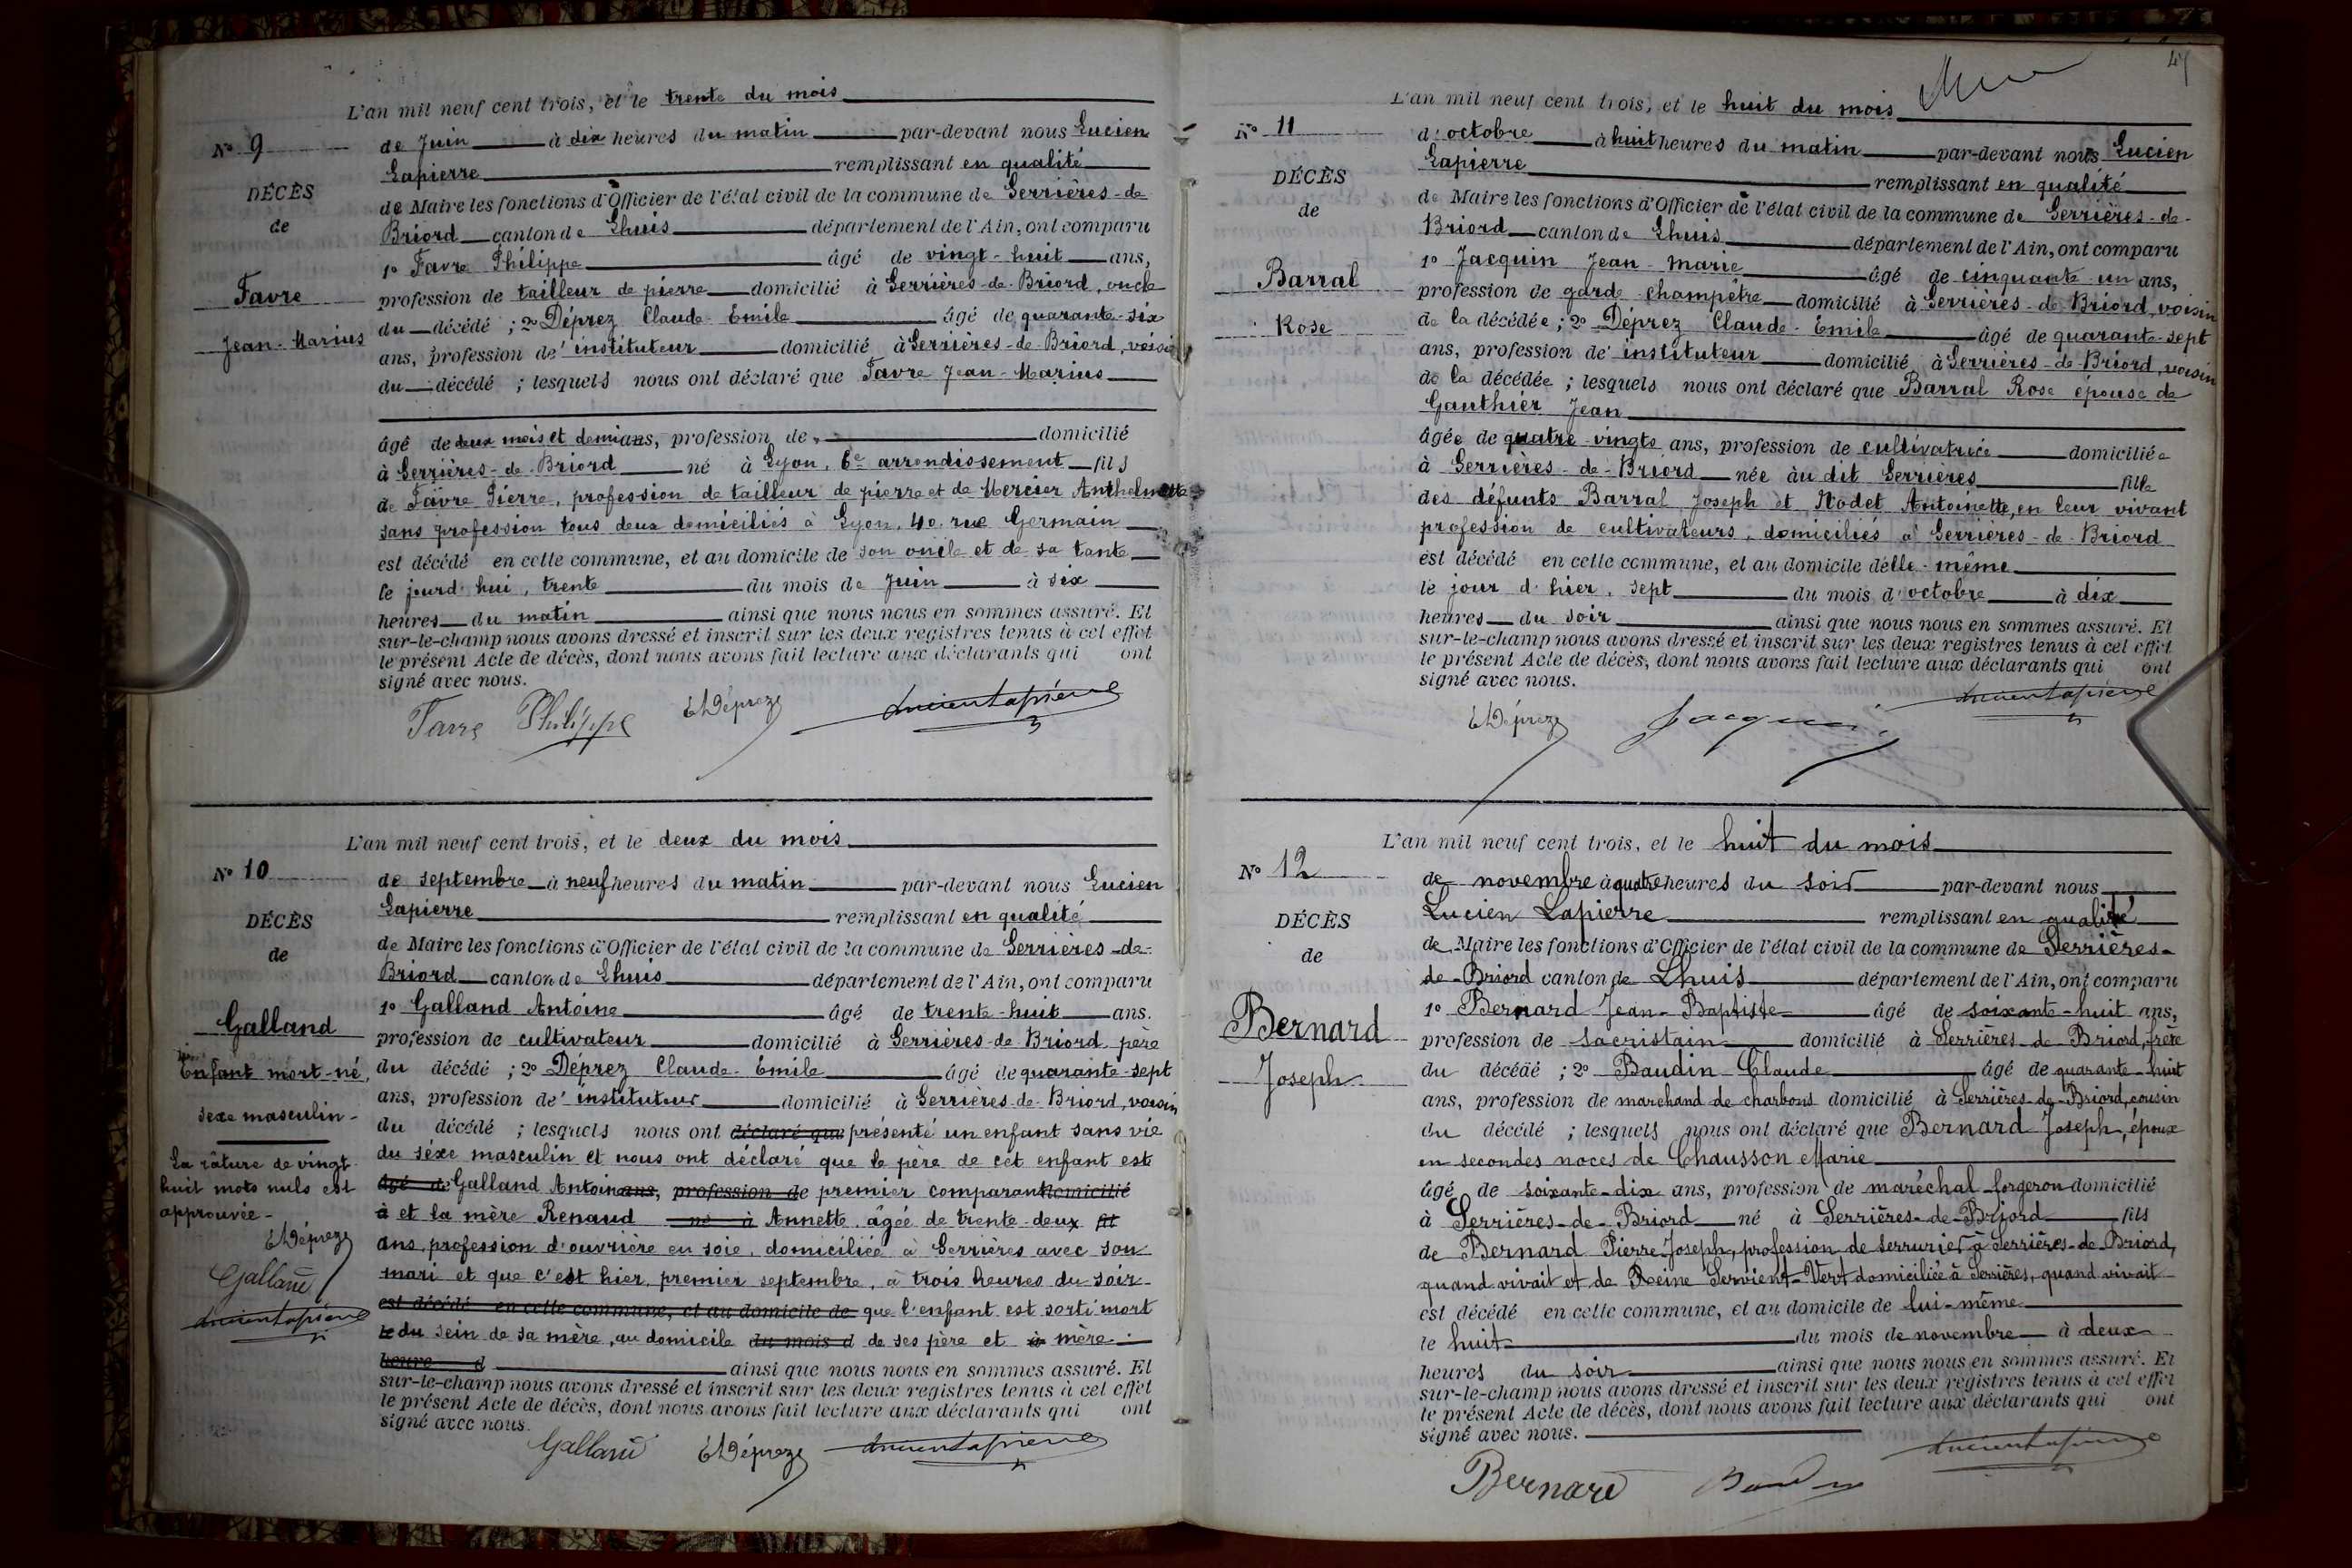 L'an mil neuf cent trois, et le trente du mois
N° 9
de Juin à dix heures du matin par-devant nous Lucien
Lapierre remplissant en qualité
DÉCÈS
de Maire les fonctions d'Officier de l'état civil de la commune de Serrières-de-
de
Briord canton de Lhuis département de l'Ain, ont comparu
1° Favre Philippe âgé de vingt-huit ans,
Favre
profession de tailleur de pierre domicilié à Serrières-de-Briord, oncle
du décédé ; 2° Déprez Claude-Émile âgé de quarante-six
Jean-Marius
ans, profession de' instituteur domicilié à Serrières-de-Briord, voisin
du décédé ; lesquels nous ont déclaré que Favre Jean-Marius
âgé de deux mois et demi ans, profession de domicilié
à Serrières-de-Briord né à Lyon, 6e arrondissement fils
de Favre Pierre, profession de tailleur de pierre et de Mercier Anthelmette
sans profession tous deux domiciliés à Lyon, 40, rue Germain
est décédé en cette commune, et au domicile de son oncle et de sa tante
le jourd'hui, trente du mois de Juin à six
heures du matin ainsi que nous nous en sommes assuré. Et
sur-le-champ nous avons dressé et inscrit sur les deux registres tenus à cet effet
le présent Acte de décès, dont nous avons fait lecture aux déclarants qui ont
signé avec nous.
Favre Philippe EDéprez Lucien Lapierre
L'an mil neuf cent trois, et le deux du mois
N° 10
de septembre à neuf heures du matin par-devant nous Lucien
Lapierre remplissant en qualité
DÉCÈS
de Maire les fonctions d'Officier de l'état civil de la commune de Serrières-de-
de
Briord canton de Lhuis département de l'Ain, ont comparu
1° Galland Antoine âgé de trente-huit ans.
Galland
profession de cultivateur domicilié à Serrières-de-Briord père
Enfant mort-né,
du décédé ; 2° Déprez Claude-Émile âgé de quarante-sept
sexe masculin-
ans, profession de' instituteur domicilié à Serrières-de-Briord, voisin
du décédé ; lesquels nous ont déclaré que présenté un enfant sans vie
La râture de vingt-
huit mots nuls est
approuvée-
EDéprez
Galland
Lucien Lapierre
du séxe masculin et nous ont déclaré que le père de cet enfant est
âgé de Galland Antoine ans, profession de premier comparant domicilié
à et la mère Renaud né à Annette, âgée de trente-deux fil
ans, profession d'ouvrière en soie, domiciliée à Serrières avec son
mari et que c'est hier, premier septembre, à trois heures du soir-
est décédé en cette commune, et au domicile de que l'enfant est sorti mort
le du sein de sa mère, au domicile du mois d de ses père et à mère.
heure d ainsi que nous nous en sommes assuré. Et
sur-le-champ nous avons dressé et inscrit sur les deux registres tenus à cet effet
le présent Acte de décès, dont nous avons fait lecture aux déclarants qui ont
signé avec nous.
Galland EDéprez Lucien Lapierre
L'an mil neuf cent trois, et le huit du mois
N° 11
d'octobre à huit heures du matin par-devant nous Lucien
Lapierre remplissant en qualité
DÉCÈS
de Maire les fonctions d'Officier de l'état civil de la commune de Serrières-de-
de
Briord canton de Lhuis département de l'Ain, ont comparu
1° Jacquin Jean-Marie âgé de cinquante-un ans,
Barral
profession de garde champêtre domicilié à Serrières-de-Briord, voisin
Rose
de la décédée ; 2° Déprez Claude-Émile âgé de quarante-sept
ans, profession de' instituteur domicilié à Serrières-de-Briord, voisin
de la décédée ; lesquels nous ont déclaré que Barral Rose épouse de
Gauthier Jean
âgée de quatre-vingts ans, profession de cultivatrice domiciliée
à Serrières-de-Briord née au dit Serrières fille
des défunts Barral Joseph et Nodet Antoinette, en leur vivant
profession de cultivateurs, domiciliés à Serrières-de-Briord
est décédé en cette commune, et au domicile d'elle-même
le jour d'hier, sept du mois d'octobre à dix
heures du soir ainsi que nous nous en sommes assuré. Et
sur-le-champ nous avons dressé et inscrit sur les deux registres tenus à cet effet
le présent Acte de décès, dont nous avons fait lecture aux déclarants qui ont
signé avec nous.
EDéprez Jacquin Lucien Lapierre
L'an mil neuf cent trois, et le huit du mois
N° 12
de novembre à quatre heures du soir par-devant nous
Lucien Lapierre remplissant en qualité
DÉCÈS
de Maire les fonctions d'Officier de l'état civil de la commune de Serrières-
de
de-Briord canton de Lhuis département de l'Ain, ont comparu
1° Bernard Jean-Baptiste âgé de soixante-huit ans,
Bernard
profession de sacristain domicilié à Serrières-de-Briord, frère
Joseph
du décédé ; 2° Baudin Claude âgé de quarante-huit
ans, profession de marchand de charbons domicilié à Serrières-de-Briord, cousin
du décédé ; lesquels nous ont déclaré que Bernard Joseph, époux
en secondes noces de Chausson Marie
âgé de soixante-dix ans, profession de maréchal-forgeron domicilié
à Serrières-de-Briord né à Serrières-de-Briord fils
de Bernard Pierre Joseph, profession de serrurier à Serrières-de-Briord,
quand vivait et de Reine Servient-Vert domiciliée à Serrières, quand vivait
est décédé en cette commune, et au domicile de lui-même
le huit du mois de novembre à deux
heures du soir ainsi que nous nous en sommes assuré. Et
sur-le-champ nous avons dressé et inscrit sur les deux registres tenus à cet effet
le présent Acte de décès, dont nous avons fait lecture aux déclarants qui ont
signé avec nous.
Bernard Baudin Lucien Lapierre